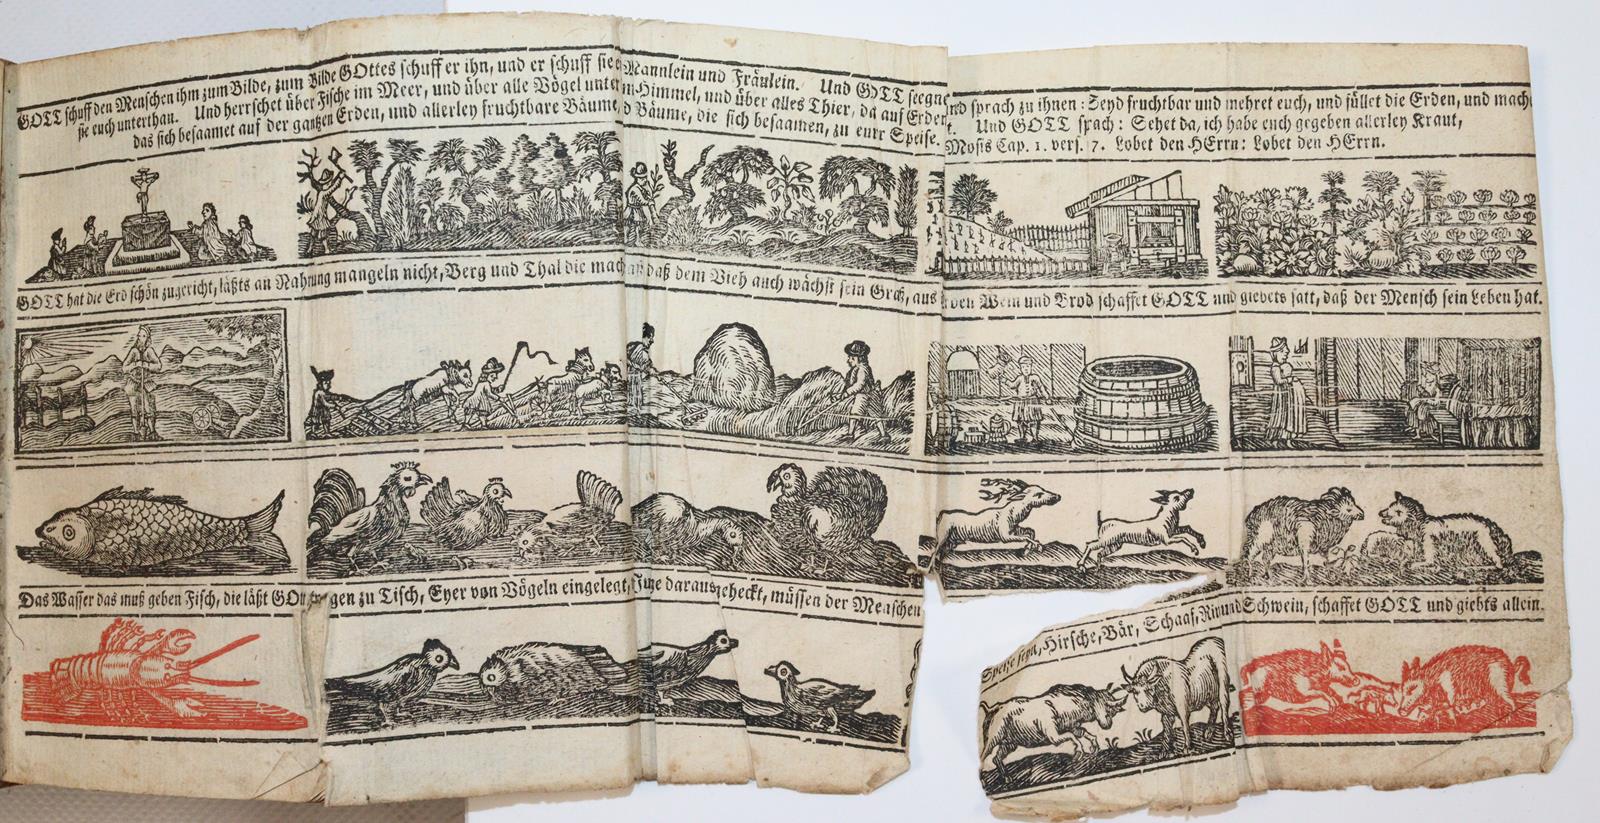 GOTT schuff den Menschen ihm zum Bilde, zum Bilde GOttes schuff er ihn, und er schuff sie Mannlein und Fräulein. Und GOTT seegne und sprach zu ihnen: Seyd fruchtbar und mehret euch, und füllet die Erden, und mach
sie euch unterthan. Und herrschet über Fische im Meer, und über alle Vögel unterm Himmel, und über alles Thier, da auf Erden Und GOTT sprach: Sehet da, ich habe euch gegeben allerley Kraut,
das sich besaamet auf der gantzen Erden, und allerley fruchtbare Bäume, Bäume, die sich besaamen, zu eurr Speise. Mosis Cap. 1. vers. 7. Lobet den HErrn: Lobet den HErrn.
GOTT hat die Erd schön zugericht, läßts an Nahrung mangeln nicht, Berg und Thal die mach daß dem Vieh auch wächst sein Graß, aus Wein und Brod schaffet GOTT und giebets satt, daß der Mensch sein Leben hat.
Das Wasser das muß geben Fisch, die läßt GOtt tragen zu Tisch, Eyer von Vögeln eingelegt, Junge daraus geheckt, müssen der Menschen Speise seyn, Hirsche, Bär, Schaaf, Rind und Schwein, schaffet GOTT und giebts allein.